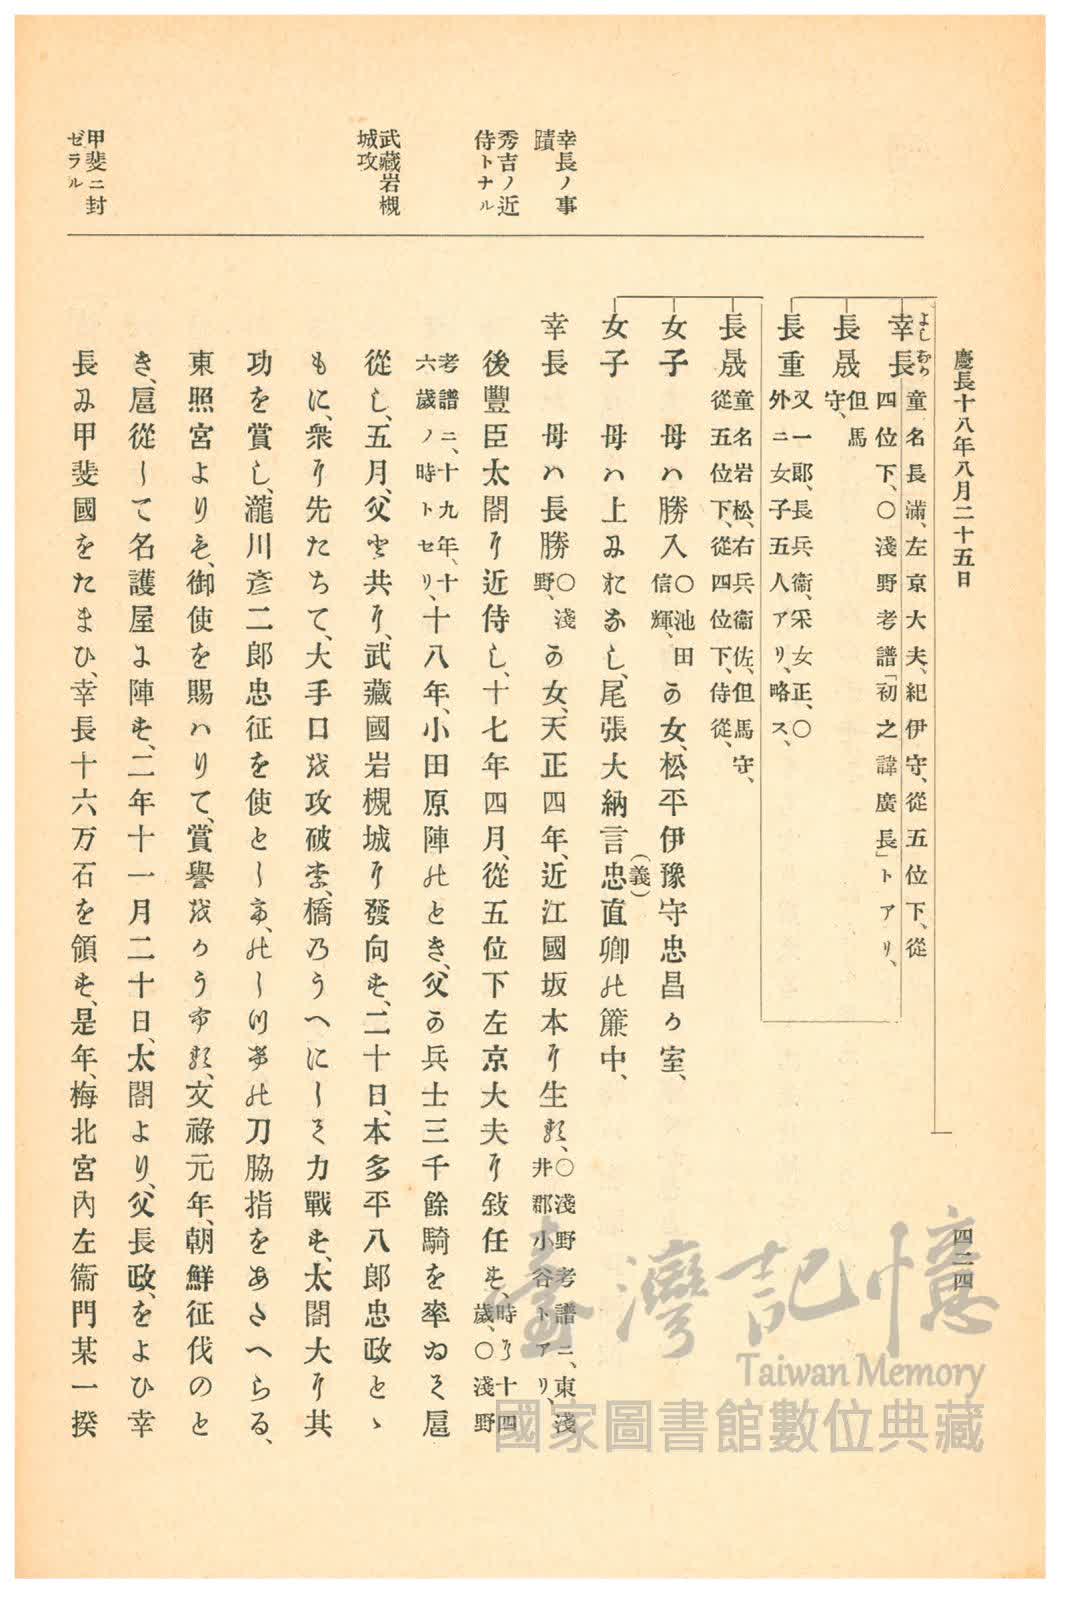 慶長十八年八月二十五日
四二四
幸長ノ事
蹟
秀吉ノ近
侍トナル
武藏岩槻
城攻
甲斐ニ封
ゼラル
よしなか
幸長 童名長滿、左京大夫、紀伊守、從五位下、從
四位下、〇淺野考譜「初之諱廣長」トアリ、
長晟 但馬
守、
長重 又一郎、長兵衞、采女正、〇
外ニ女子五人アリ、略ス、
長晟 童名岩松、右兵衞佐、但馬守、
從五位下、從四位下、侍從、
女子 母ハ勝入〇池田
信輝、の女、松平伊豫守忠昌か室、
女子 母ハ上みおなし、尾張大納言忠(義)直卿の簾中、
幸長 母ハ長勝〇淺
野、の女、天正四年、近江國坂本に生る、〇淺野考譜ニ、東淺
井郡小谷トアリ、
後豐臣太閤に近侍し、十七年四月、從五位下左京大夫に敍任す、時に十四
歲、〇淺野
考譜ニ、十九年、十
六歲ノ時トセリ、十八年、小田原陣のとき、父の兵士三千餘騎を率ゐて扈
從し、五月、父と共に、武藏國岩槻城に發向す、二十日、本多平八郎忠政とゝ
もに、衆に先たちて、大手口を攻破り、橋乃うへにして力戰す、太閤大に其
功を賞し、瀧川彥二郎忠征を使として、のし付の刀脇指をあたへらる、
東照宮よりも、御使を賜ハりて、賞譽をかうふる、文祿元年、朝鮮征伐のと
き、扈從して名護屋に陣す、二年十一月二十日、太閤より、父長政、をよひ幸
長み甲斐國をたまひ、幸長十六万石を領す、是年、梅北宮內左衞門某一揆
臺灣記憶
Taiwan Memory
國家圖書館數位典藏